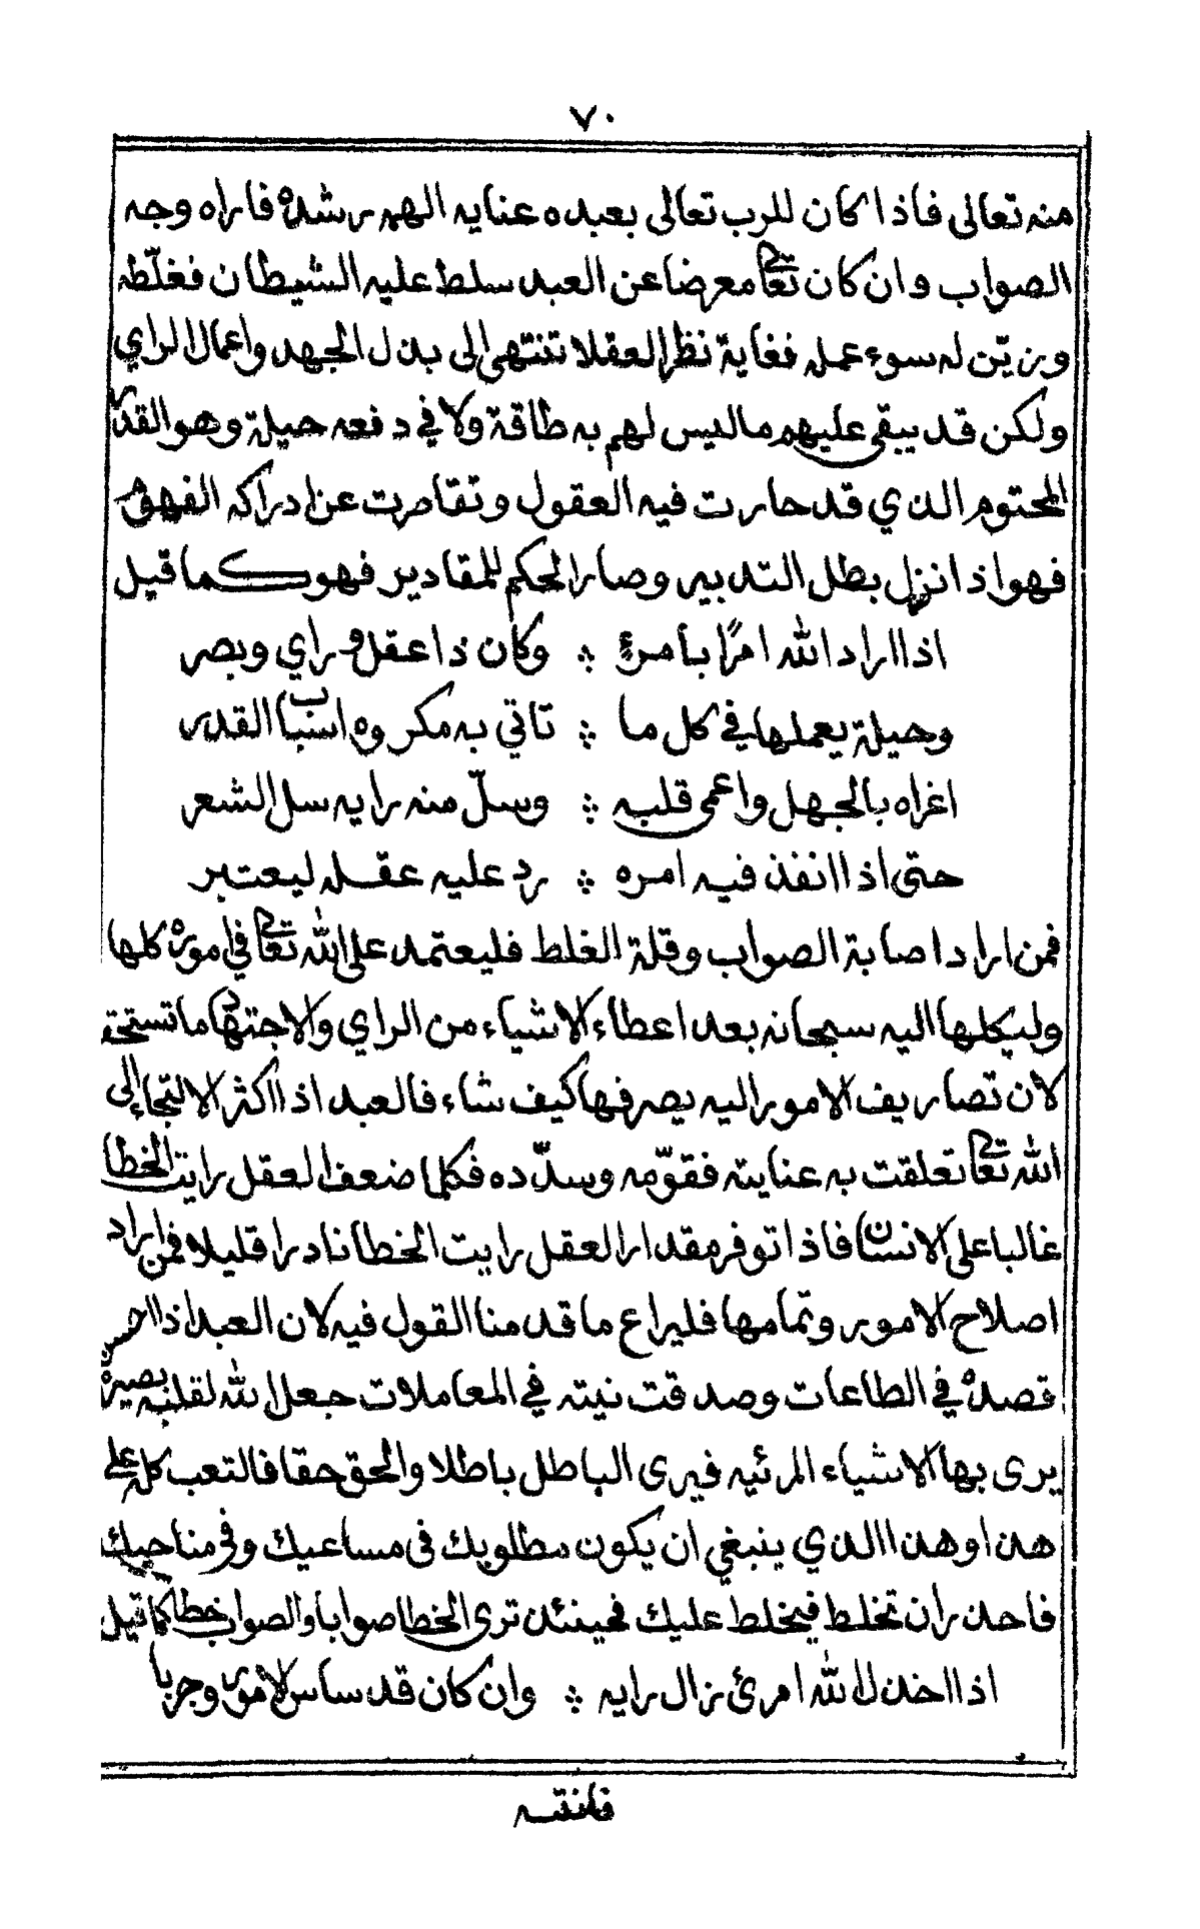 ٧٠
منه تعالى فاذا كان للرب تعالى بعبده عنايه الهمه رشده فاراه وجه
الصواب وان كان تعالى معرضا عن العبد سلط عليه الشيطان فغلّطه
وزيّن له سوء عمله فغاية نظر العقلا تنتهي الى بذل الجهد واعمال الراي
ولكن قد يبقى عليهم ما ليس لهم به طاقة ولا في دفعه حيلة وهو القدر
المحتوم الذي قد حارت فيه العقول وتقاصرت عن ادراكه الفهوم
فهو اذا نزل بطل التدبير وصار الحكم للمقادير فهو كما قيل
اذا اراد الله امرًا بامرئٍ ؞ وكان ذا عقل وراي وبصر
وحيلة يعملها في كل ما ؞ تاتي به مكروه اسباب القدر
اغراه بالجهل واعمى قلبه ؞ وسلّ منه رايه سل الشعر
حتى اذا انفذ فيه امره ؞ رد عليه عقله ليعتبر
فمن اراد اصابة الصواب وقلة الغلط فليعتمد على الله تعالى في اموره كلها
وليكلها اليه سبحانه بعد اعطاء الاشياء من الراي والاجتهاد ما تستحقه
لان تصاريف الامور اليه يصرفها كيف شاء فالعبد اذا اكثر الالتجاء الى
الله تعالى تعلقت به عنايته فقوّمه وسدّده فكلما ضعف العقل رايت الخطا
غالبا على الانسان فاذا توفر مقدار العقل رايت الخطا نادرا قليلا فمن اراد
اصلاح الامور وتمامها فليراع ما قدمنا القول فيه لان العبد اذا احسن
قصده في الطاعات وصدقت نيته في المعاملات جعل الله لقلبه بصيرة
يرى بها الاشياء المرئيه فيرى الباطل باطلا والحق حقا فالتعب كله على
هذا وهذا الذي ينبغي ان يكون مطلوبك في مساعيك وفي مناحيك
فاحذر ان تخلط فيخلط عليك فحينئذ ترى الخطا صوابا والصواب خطا كما قيل
اذا اخذ الله امرئ زال رايه ؞ وان كان قد ساس الامور وجربا